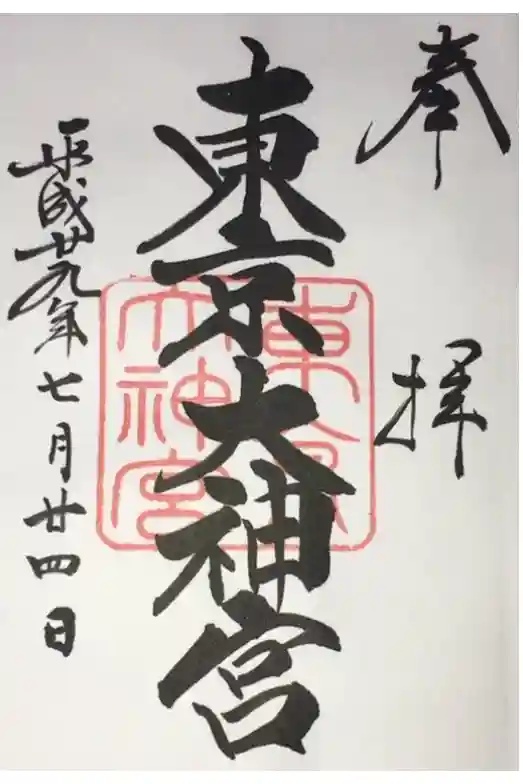 奉拝
東京大神宮
東京大神宮
平成廿九年七月廿四日